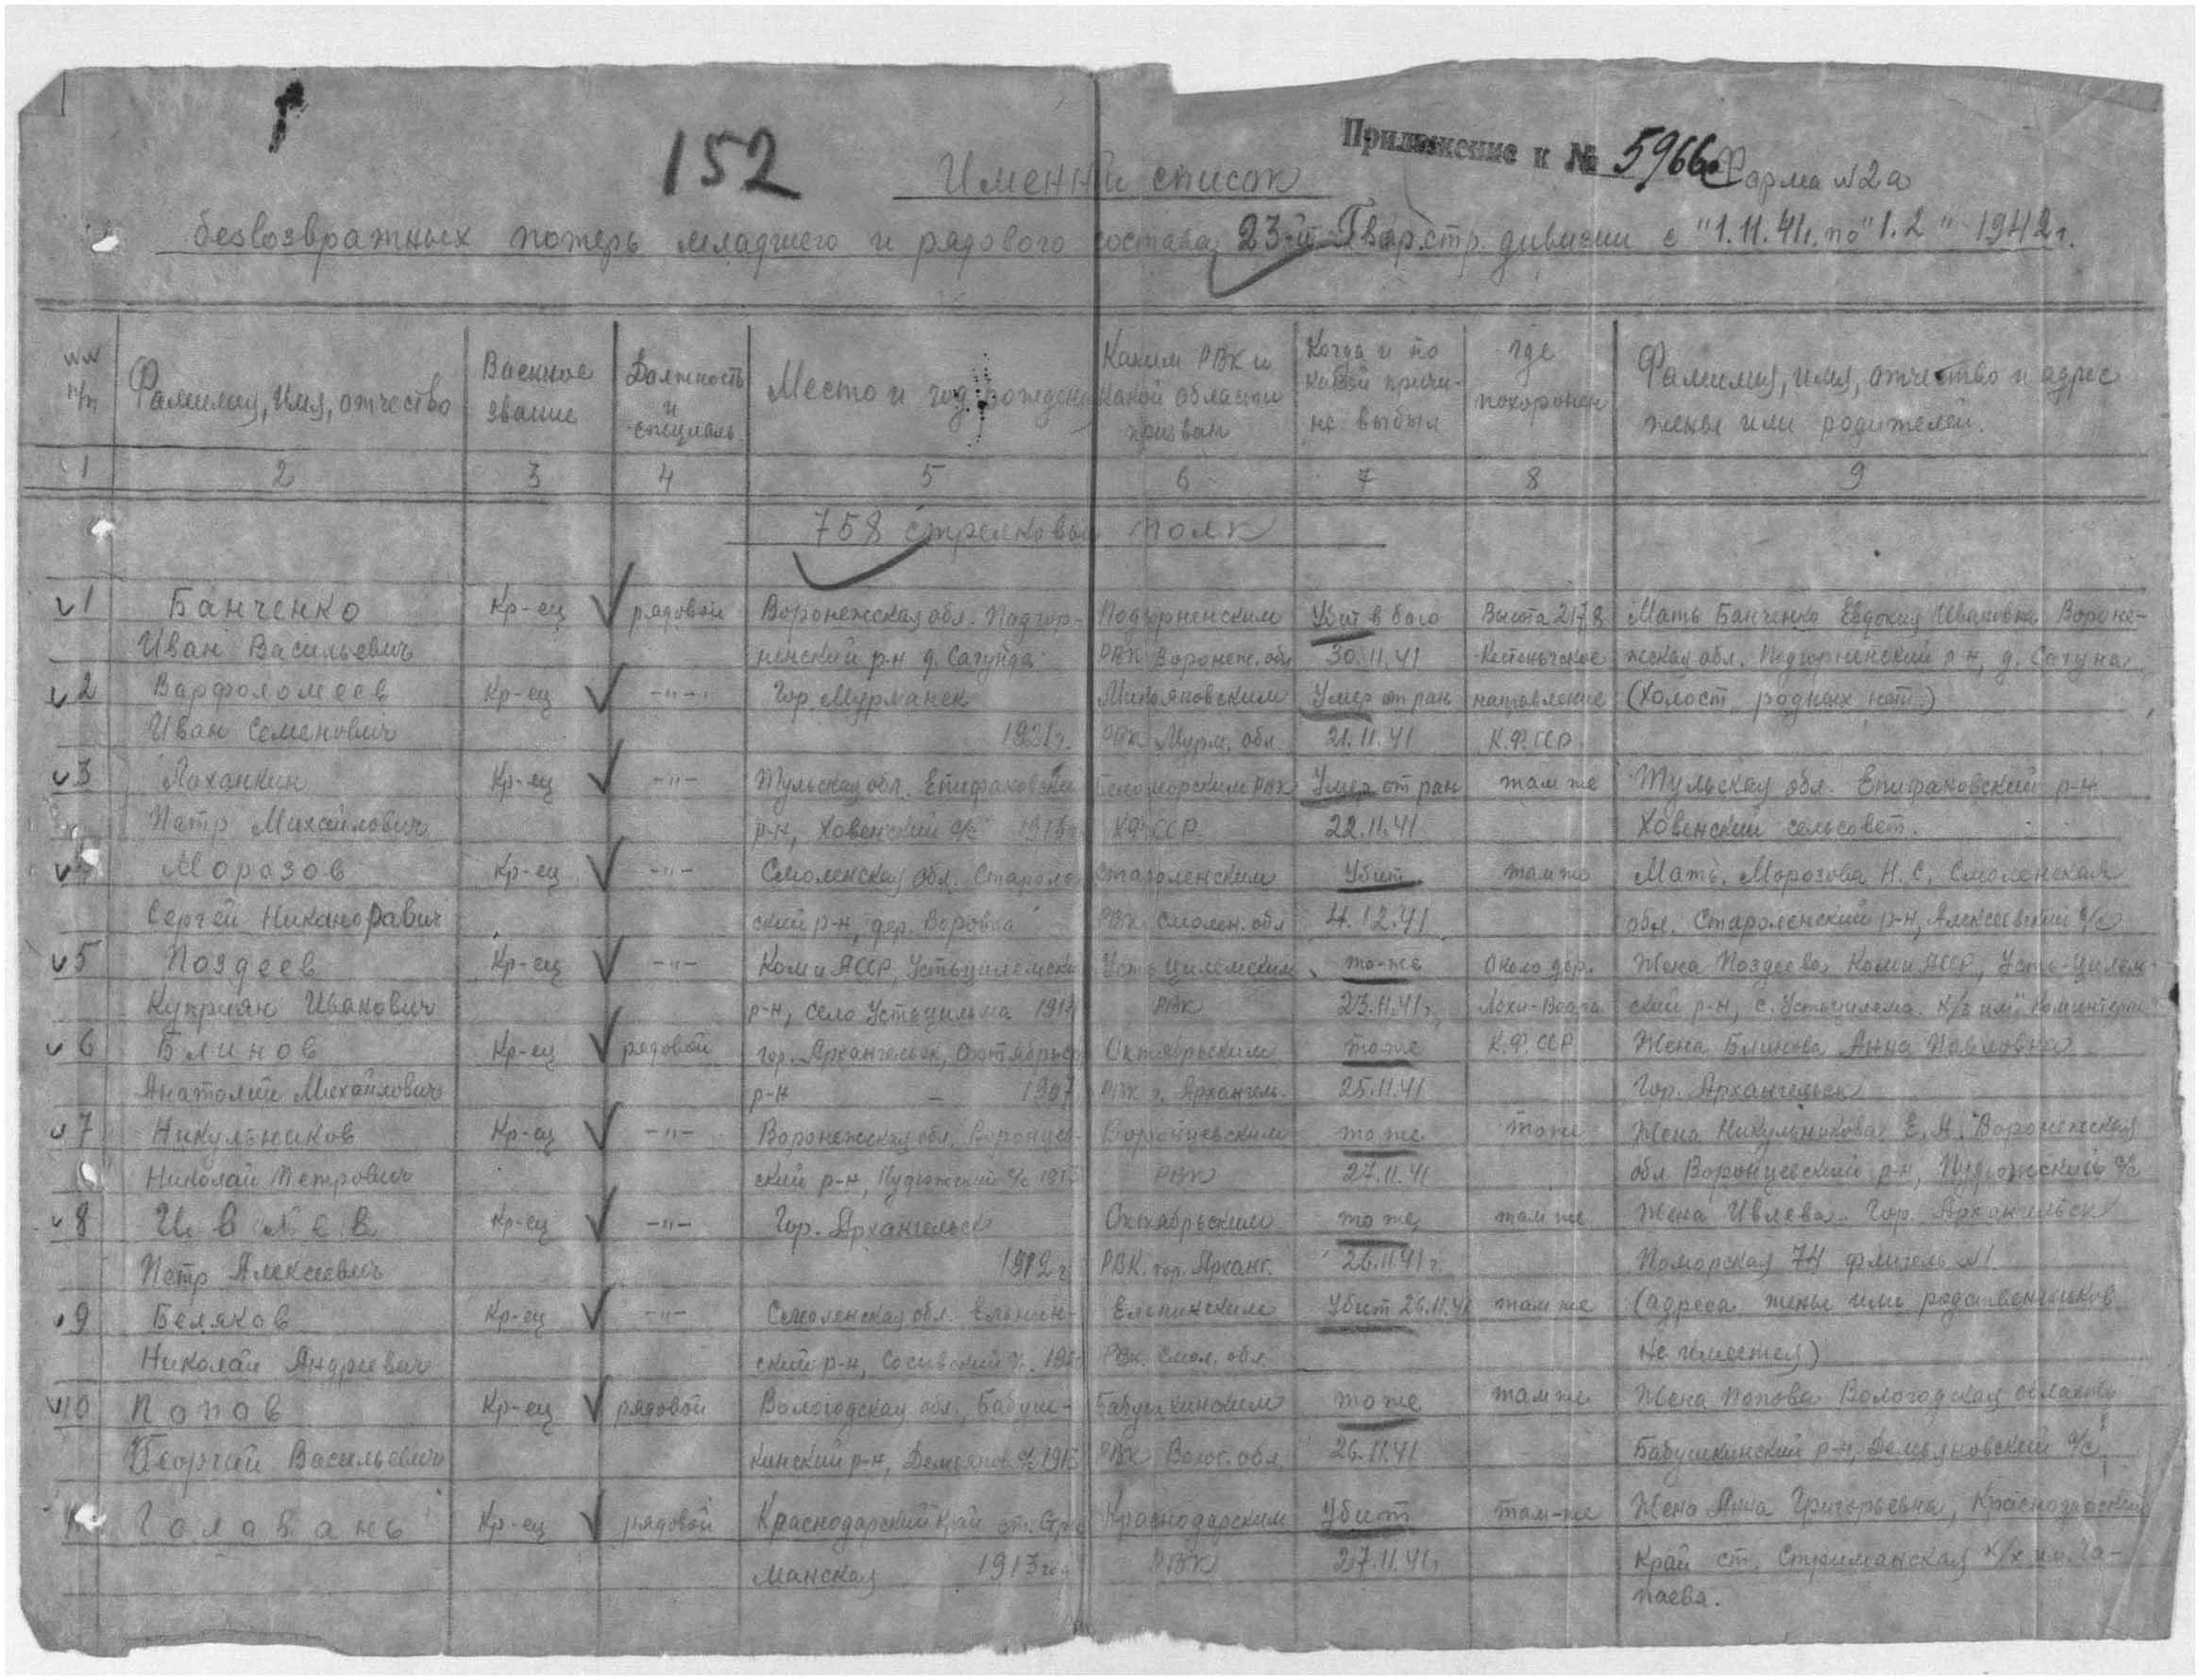 152
Приложение к № 5966с
Именной список
Форма №2а
безвозвратных потерь младшего и рядового состава 23-й Гвар. стр. дивизии с "1.11.41г. по "1.2" 1942г.
№№ п/п
Фамилия, имя, отчество
Военное звание
Должность и специаль.
Место и год рождения
Каким РВК и какой областью призван
Когда и по какой причине выбыл
где похоронен
Фамилия, имя, отчество и адрес жены или родителей.
1 2 3 4 5 6 7 8 9
758 стрелковый полк
1 Банченко Кр-ец рядовой Воронежская обл. Подгор- Подгорненским Убит в бою Высота 217,8 Мать Банченко Евдокия Ивановна Вороне-
Иван Васильевич ненский р-н д. РВК Воронеж. обл 30.11.41 Кестеньгское жская обл. Подгорненский р-н, д.
2 Варфоломеев Кр-ец -"- Гор. Мурманск Микояновским Умер от ран направление (Холост, родных нет.)
Иван Семенович 1921г. РВК Мурм. обл. 21.11.41 К.Ф.ССР
3 Лоханкин Кр-ец -"- Тульская обл. Епифановский Беломорским РВК Умер от ран там же Тульская обл. Епифановский р-н
Петр Михайлович р-н, Ховенский с/с К.Ф.ССР. 22.11.41 Ховенский сельсовет.
Морозов Кр-ец -"- Смоленская обл. Староленским Убит там же Мать. Морозова Н.С. Смоленская
Сергей Никаноравич ский р-н, дер. РВК Смолен. обл 4.12.41 обл. Староленский р-н, Алексеевский с/с
5 Поздеев Кр-ец -"- Коми АССР, Устьцилемски Усть цилемским то-же Около дер. Жена Поздеева Коми АССР, Усть-Цилем-
Куприян Иванович р-н, село Устьцильма РВК 23.11.41г. Лохи-Ваара ский р-н, с. Устьцилема. к/з им"
6 Блинов Кр-ец рядовой гор. Архангельск, Октябрьск Октябрьским то же К.Ф.ССР Жена Блинова Анна Павловна
Анатолий Михайлович р-н - 1907 РВК г. Архангель. 25.11.41 Гор. Архангельск
7 Никульников Кр-ец -"- Воронежская обл. Воронцов- Воронцовским то же то же Жена Никульникова Е.А. Воронежская
Николай Петрович ский р-н, с/с РВК 27.11.41 обл. Воронцовский р-н, с/с
8 Ивлев Кр-ец -"- Гор. Архангельск Октябрьским то же там же Жена Ивлева. Гор. Архангельск
Петр Алексеевич 1912г РВК. гор. Арханг. 26.11.41г. Поморская 74 флигель №1.
9 Беляков Кр-ец -"- Смоленская обл. Ельнин- Ельнинским Убит 26.11.41 там же (адреса жены или родственников
Николай Андреевич ский р-н, РВК. Смол. обл. не имеется)
10 Попов Кр-ец рядовой Вологодская обл., Бабуш- Бабушкинским то же там же Жена Попова Вологодская область
Георгий Васильевич кинский р-н, Демьянов. с/с РВК Волог. обл. 26.11.41 Бабушкинский р-н, Демьяновский с/с
Голавань Кр-ец рядовой Краснодарский край ст. Краснодарским Убит там-же Жена Анна Григорьевна, Краснодарский
манская 1913 год РВК 27.11.41г край ст. к/х им. Ча-
паева.